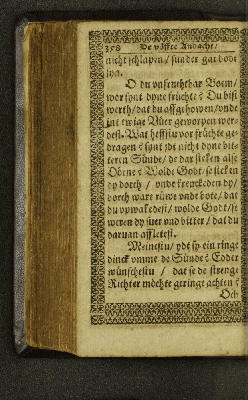 358 De vöffte Andacht/
nicht schlapen/ sunder gar dodt
syn.
O du vnfruchtbar Boem/
wor synt dyne früchte? Du bist
werth/ dat du affgehowen/ vnde
int ewige Vüer geworpen wer-
dest. Wat heffstu vor früchte ge-
dragen? synt ydt nicht dyne bit-
teren Sünde/ de dar steken alse
Dörne? Wolde Godt/ se steken
dy doch/ vnde
dorch ware rüwe vnde bote/ dat
du vpwakedest/ wolde Godt/ se
weren dy suer vnd bitter/ dat du
daruan affletest.
Meinestu/ ydt sy ein ringe
dinck vmme de Sünde? Edder
wünschestu/ dat se de strenge
Richter möchte geringe achten?
Och